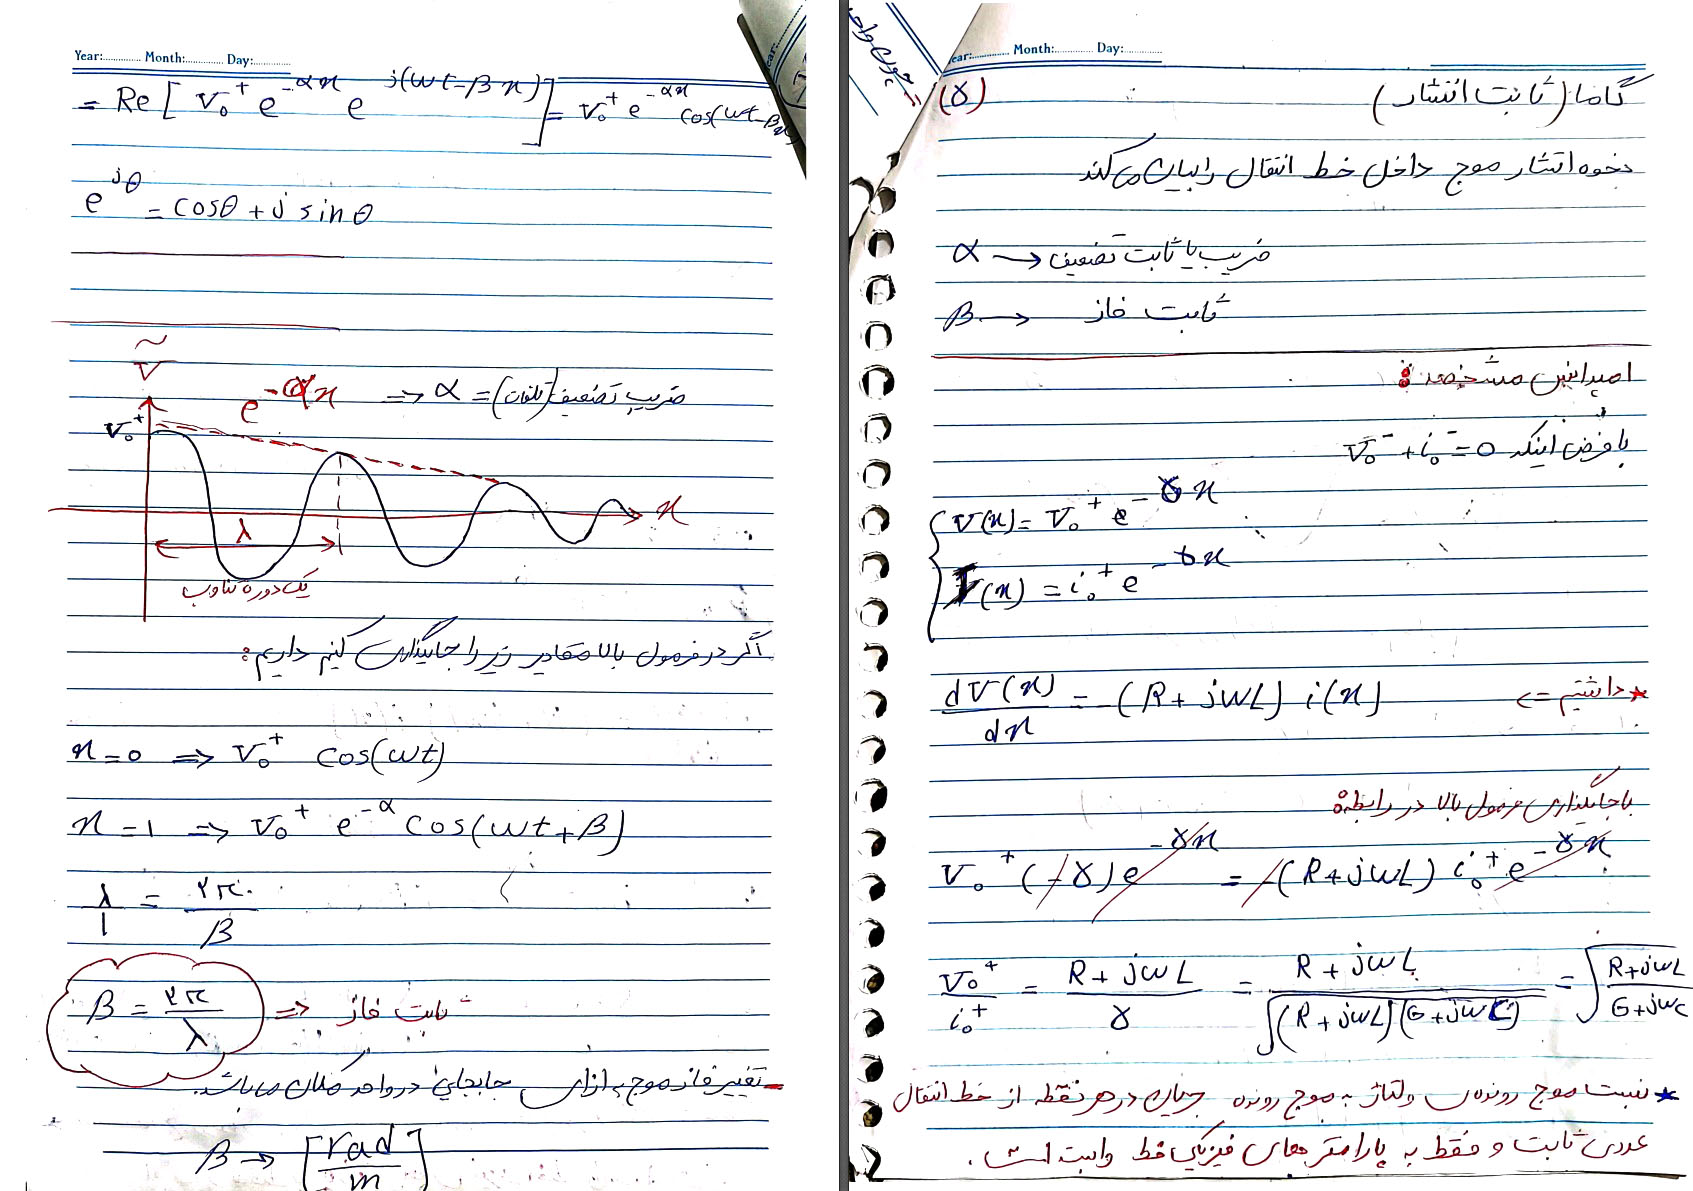 Year:............. Month:............. Day:.............
= Re [ V₀⁺ e^-αx e^j(ωt-βx) ] = V₀⁺ e^-αx cos(ωt-βx)
e^jθ = cosθ + j sinθ
Ṽ
e^-αx ⇒ α = ضریب تضعیف (تلفات)
V₀⁺
x
λ
یک دوره تناوب
اگر در فرمول بالا مقادیر زیر را جایگذاری کنیم داریم:
x = 0 ⇒ V₀⁺ cos(ωt)
x = 1 ⇒ V₀⁺ e^-α cos(ωt+β)
λ/1 = ۲π/β
β = ۲π/λ ⇒ ثابت فاز
- تغییر فاز موج به ازای جابجایی در واحد مکان می باشد.
β → [rad/m]
ear:............. Month:............. Day:.............
گاما (ثابت انتشار) (γ)
نحوه انتشار موج داخل خط انتقال را بیان می کند
α → ضریب یا ثابت تضعیف
β → ثابت فاز
امپدانس مشخصه:
با فرض اینکه V₀⁻ + i₀⁻ = 0
V(x) = V₀⁺ e^-γx
I(x) = i₀⁺ e^-γx
* داشتیم => dV(x)/dx = -(R+jωL) i(x)
با جایگذاری فرمول بالا در رابطه:
V₀⁺ (-γ) e^-γx = -(R+jωL) i₀⁺ e^-γx
V₀⁺/i₀⁺ = R+jωL/γ = R+jωL/√(R+jωL)(G+jωC) = √R+jωL/G+jωC
* نسبت موج رونده ی ولتاژ به موج رونده جریان در هر نقطه از خط انتقال
عددی ثابت و فقط به پارامترهای فیزیکی خط وابسته است.